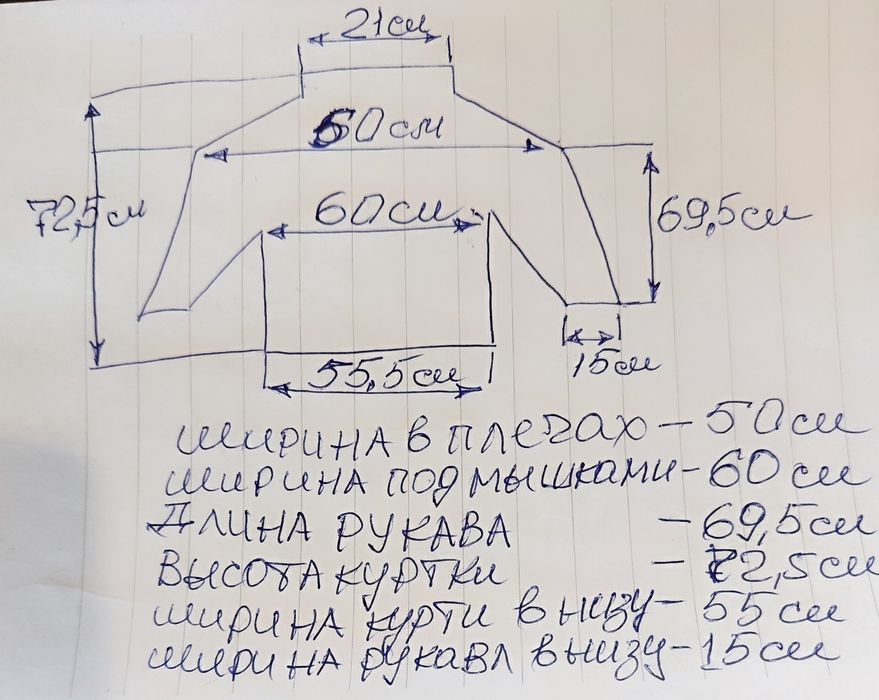 21см
50см
72,5см
60см
69,5см
55,5см
15см
ШИРИНА В ПЛЕЧАХ – 50см
ШИРИНА ПОДМЫШКАМИ – 60см
ДЛИНА РУКАВА – 69,5см
ВЫСОТА КУРТКИ – 72,5см
ШИРИНА КУРТИ ВНИЗУ – 55см
ШИРИНА РУКАВА ВНИЗУ – 15см